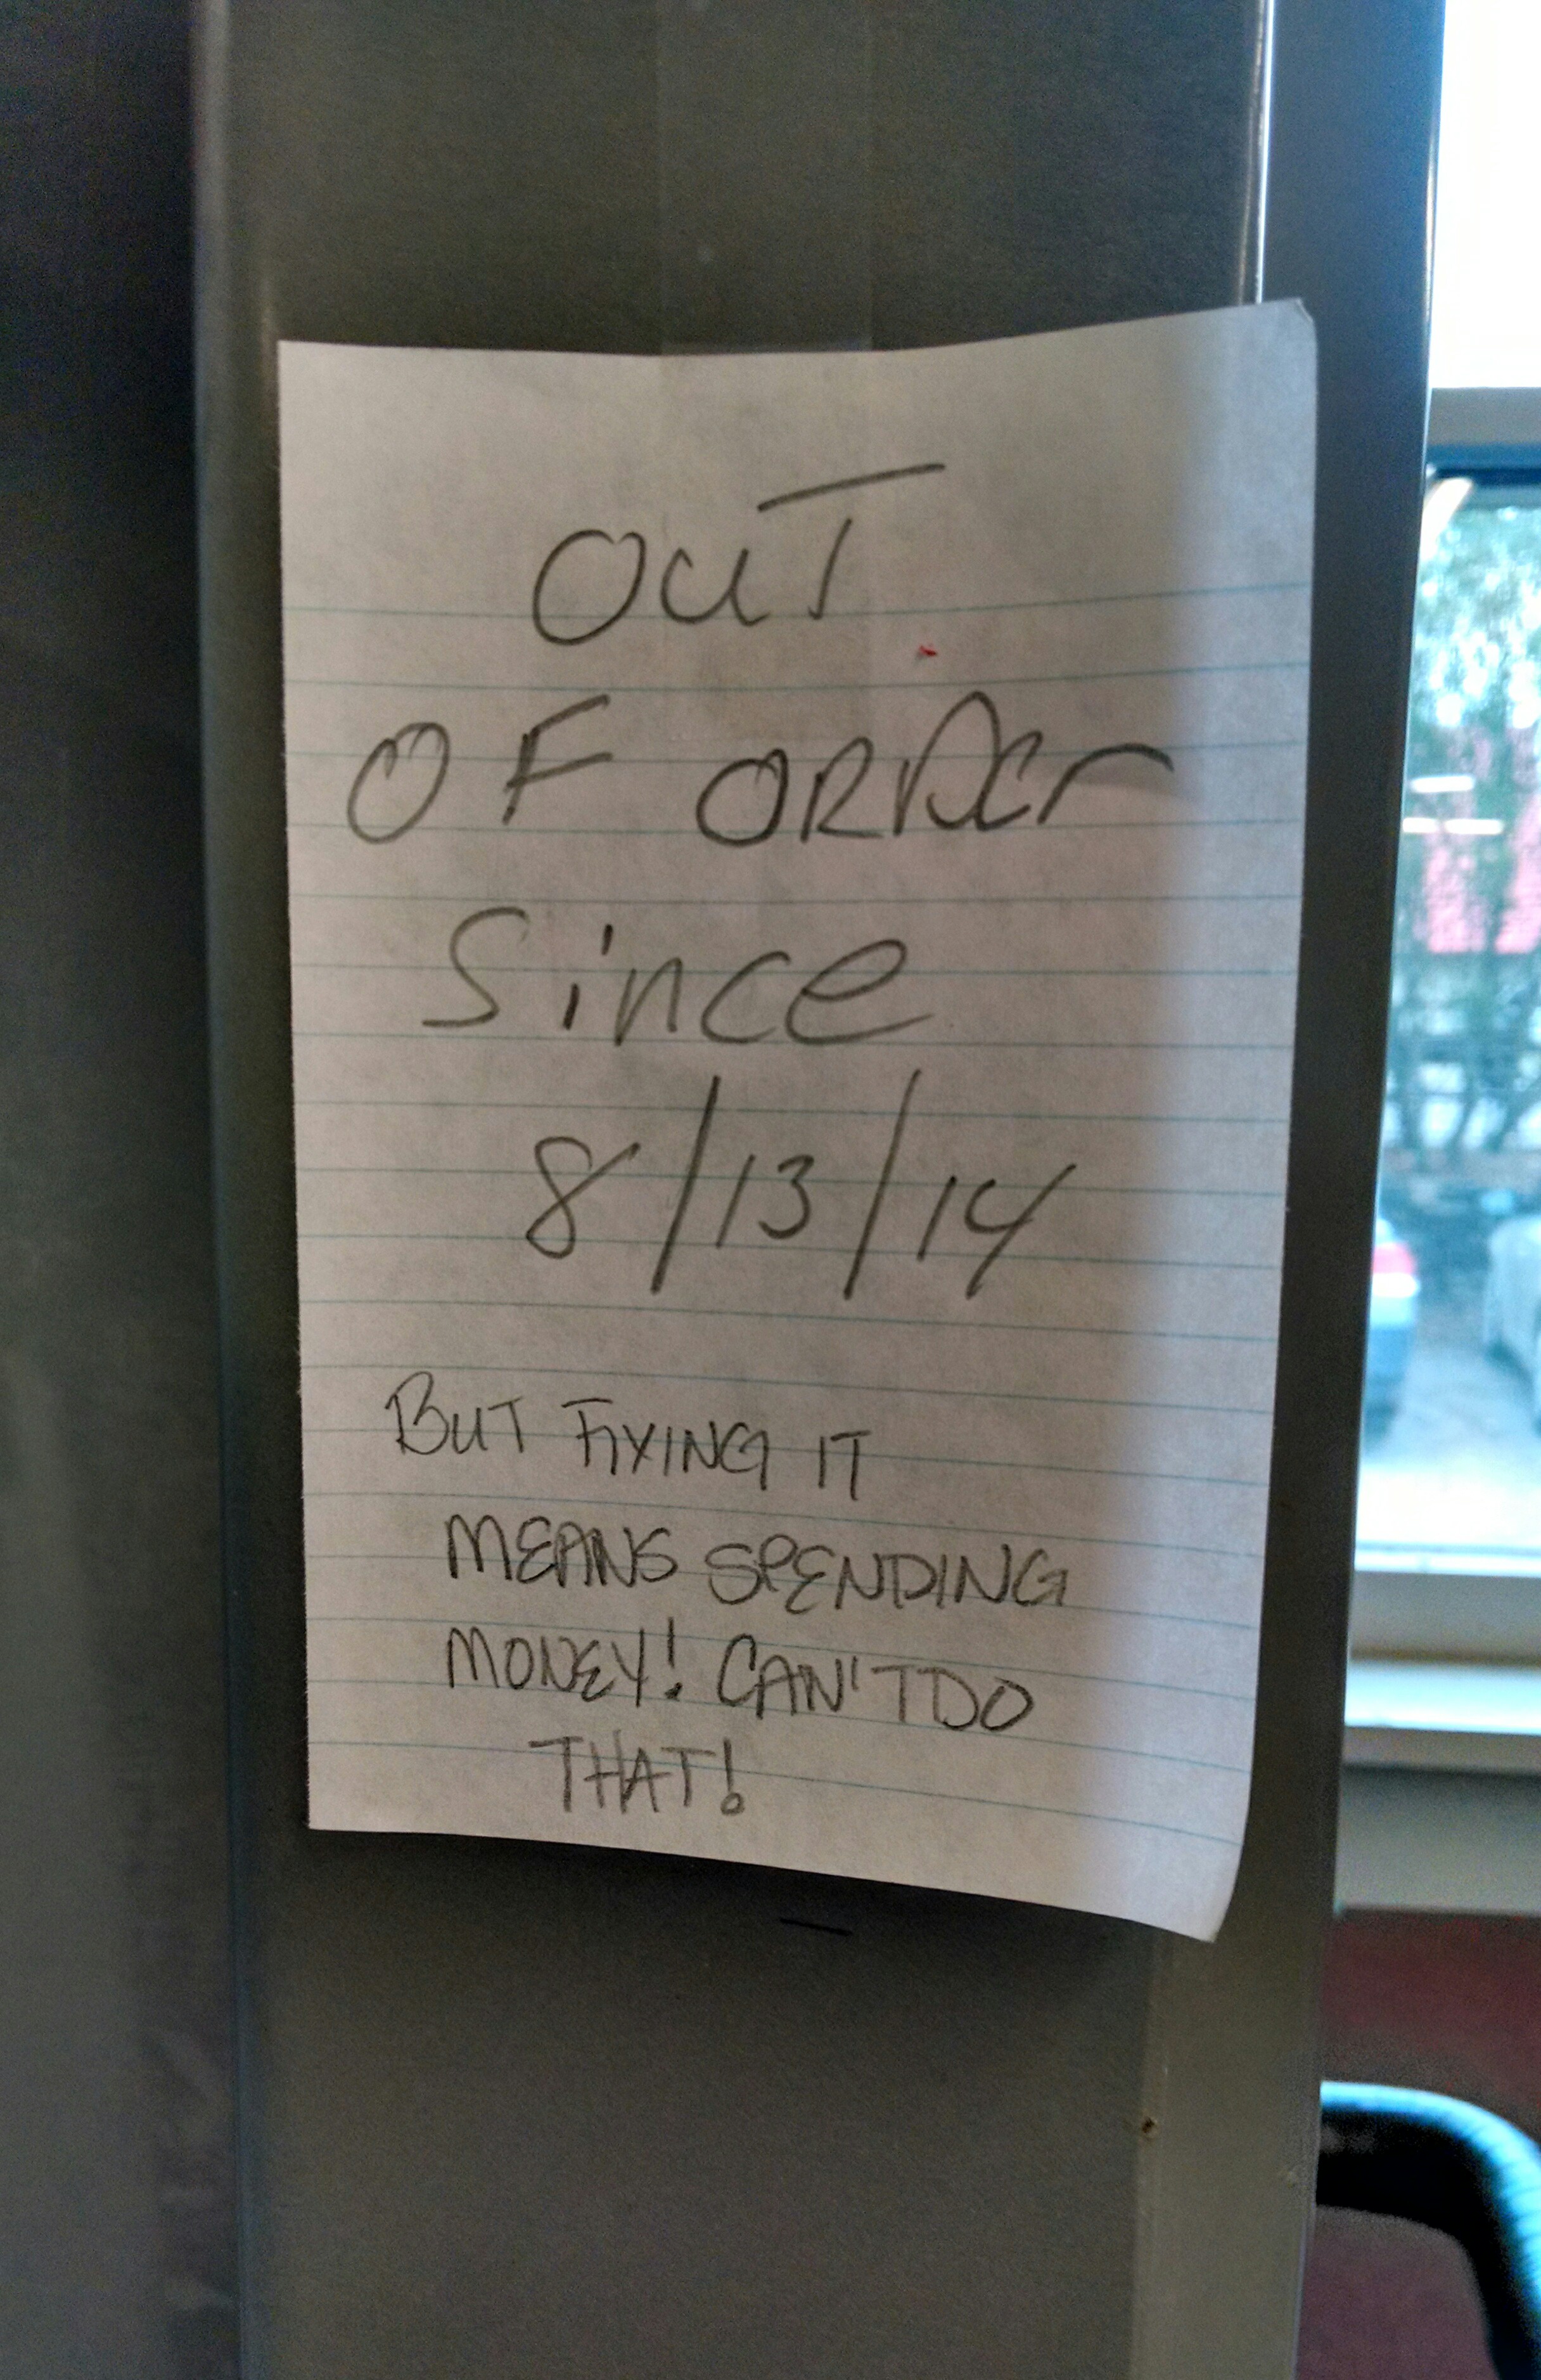 OUT
OF ORDer
Since
8/13/14
BUT FIXING IT
MEANS SPENDING
MONEY! CAN'T DO
THAT!